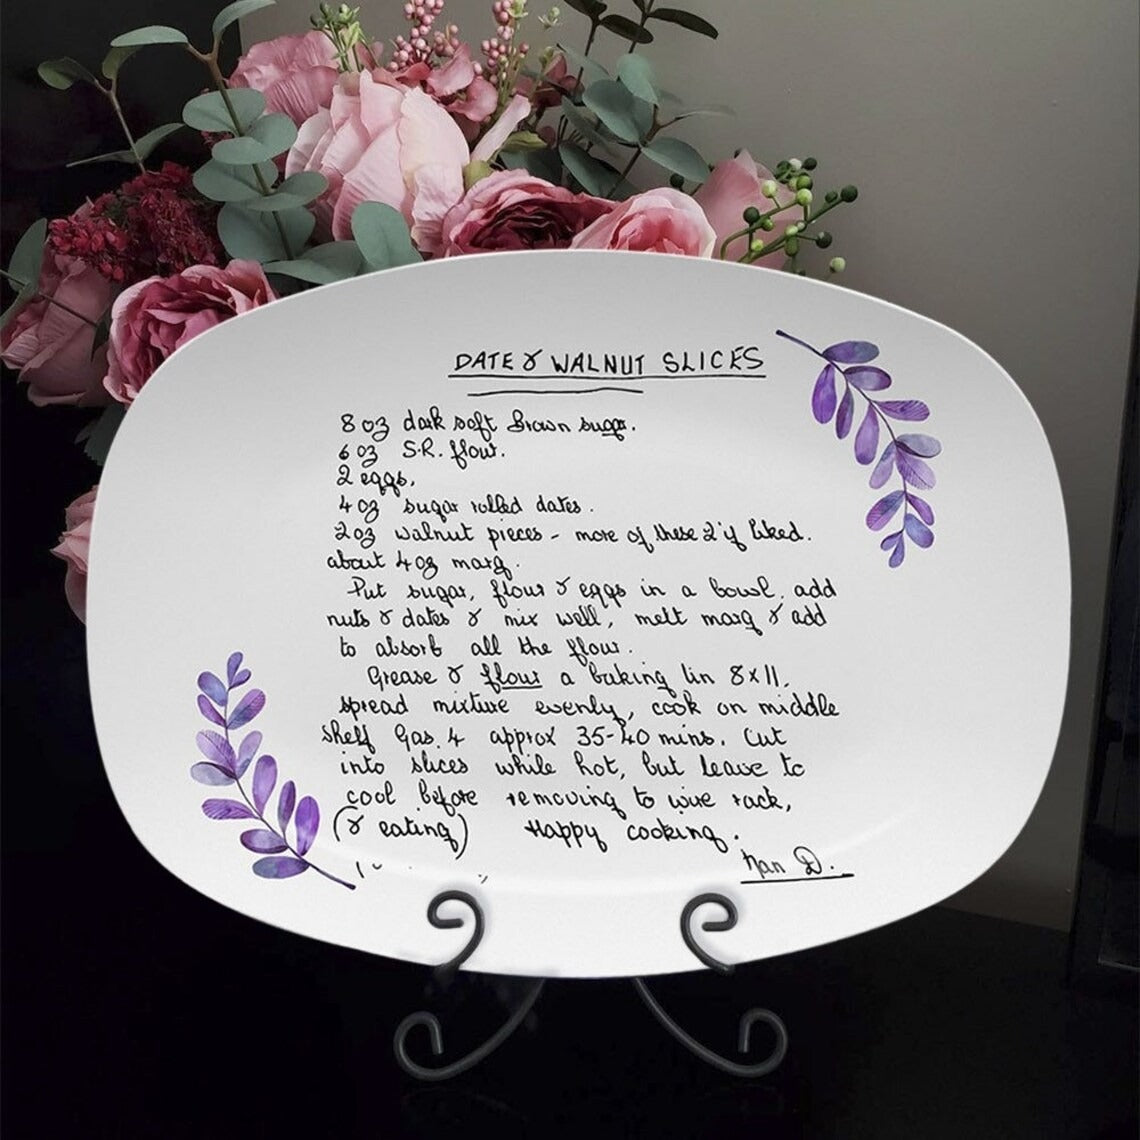 DATE & WALNUT SLICES
8 oz dark soft brown sugar.
6 oz S.R. flour.
2 eggs.
4 oz sugar rolled dates.
2 oz walnut pieces - more of these 2 if liked.
about 4 oz marg.
Put sugar, flour & eggs in a bowl, add
nuts & dates & mix well, melt marg & add
to absorb all the flour.
Grease & flour a baking tin 8x11,
spread mixture evenly, cook on middle
shelf Gas 4 approx 35-40 mins. Cut
into slices while hot, but leave to
cool before removing to wire rack,
(& eating) Happy cooking.
Nan D.